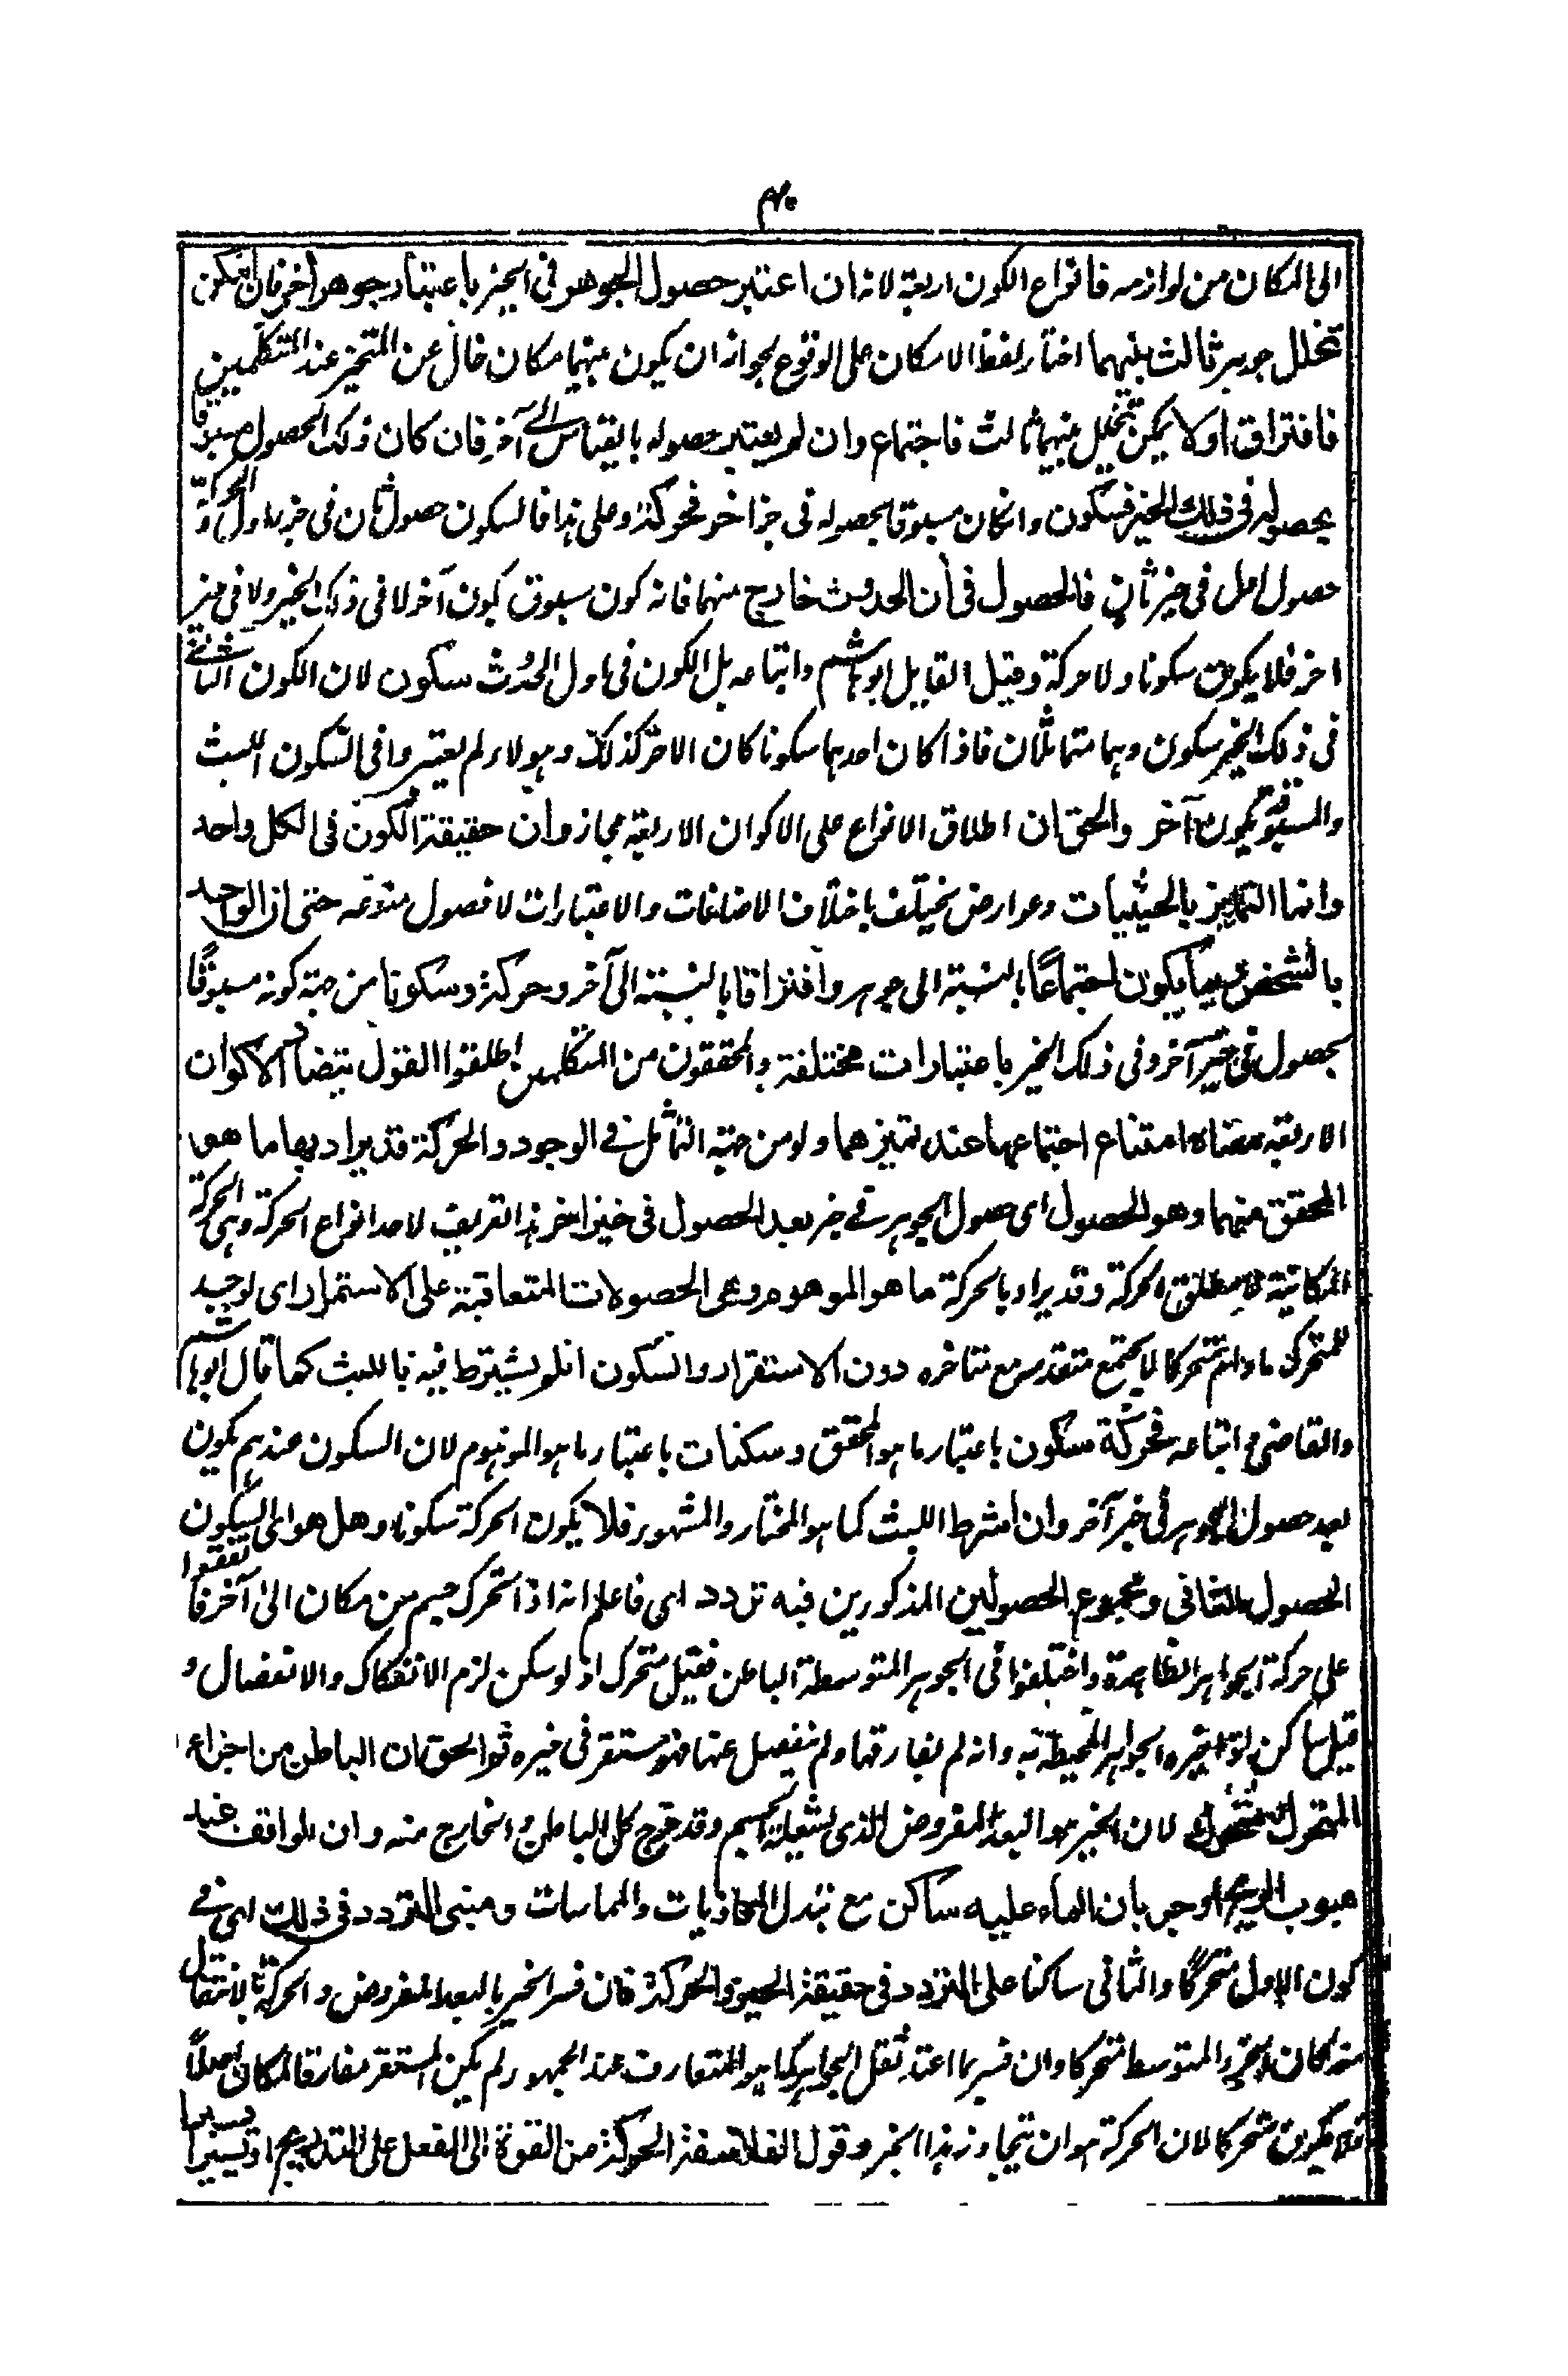 ۴۰
الى المكان من لوازمه فانواع الكون اربعة لانه ان اعتبر حصول الجوهر فى الحيز باعتبار جوهر آخر فان امكن
تخلل جوهر ثالث بينهما اختار لفظ الامكان على الوقوع لجواز ان يكون بينهما مكان خال عن المتحيز عند المتكلمين
فافتراق اولا يمكن تخلل بينهما ثالث فاجتماع وان لم يعتبر حصوله بالقياس الى آخر فان كان ذلك الحصول مسبوقا
بحصوله فى ذلك الحيز فسكون وانكان مسبوقا بحصوله فى حيز اخر فحركة وعلى هذا فالسكون حصول ثان فى حيز اول والحركة
حصول اول فى حيز ثان فالحصول فى آن الحدوث خارج منهما فانه كون مسبوق بكون آخر لا فى ذلك الحيز ولا فى حيز
اخر فلا يكون سكونا ولا حركة وقيل القايل ابو هاشم واتباعه بل الكون فى اول الحدوث سكون لان الكون الثانى
فى ذلك الحيز سكون وهما متماثلان فاذا كان احدهما سكونا كان الاخر كذلك وهولاء لم يعتبروا فى السكون اللبث
والمسبوقية بكون آخر والحق ان اطلاق الانواع على الاكوان الاربعة مجاز وان حقيقة الكون فى الكل واحد
وانما التمايز بالحيثيات وعوارض يختلف باختلاف الاضافات والاعتبارات لا فصول منوعه حتى ان الواحد
بالشخص ربما يكون اجتماعًا بالنسبة الى جوهر وافتراقا بالنسبة الى آخر وحركة وسكونا من جهة كونه مسبوقًا
بحصول فى حيز آخر وفى ذلك الحيز باعتبارات مختلفة والمحققون من المتكلمين اطلقوا القول بتضاد الاكوان
الاربعة معناه امتناع اجتماعهما عند تميزهما ولو من جهة التماثل فى الوجود والحركة قد يراد بها ما هو
المحقق منهما وهو الحصول اى حصول الجوهر فى حيز بعد الحصول فى حيز اخر هذا تعريف لاحد انواع الحركة وهى الحركة
المكانية لا مطلق الحركة وقد يراد بالحركة ما هو الموهوم وهى الحصولات المتعاقبة على الاستمرار اى لوجد
للمتحرك مادام متحركا لا يجتمع متقدمه مع متاخره دون الاستقرار والسكون ان لم يشترط فيه باللبث كما قال ابو هاشم
والقاضى واتباعه فحركة سكون باعتبار ما هو المحقق وسكنات باعتبار ما هو الموهوم لان السكون عندهم يكون
بعد حصول الجوهر فى حيز آخر وان اشترط اللبث كما هو المختار والمشهور فلا يكون الحركة سكونا وهل هو اى السكون
الحصول الثانى او مجموع الحصولين المذكورين فيه تردد اى فاعلم انه اذا تحرك جسم من مكان الى آخر فاتفقوا
على حركة الجواهر الظاهرة واختلفوا فى الجوهر المتوسطة الباطن فقيل متحرك اذ لو سكن لزم الانفكاك والانفصال و
قيل ساكن لان حيزه الجواهر المحيطة به وانه لم يفارقها ولم ينفصل عنها فهو مستقر فى حيزه ثم الحق ان الباطن من اجزاء
المتحرك متحرك لان الحيز هو البعد المفروض الذى يشغله الجسم وقد خرج كل الباطن والخارج منه وان الواقف عند
هبوب الريح او جريان الماء عليه ساكن مع تبدل المحاذيات والمماسات ومبنى التردد فى ذلك اى فى
كون الاول متحركًا والثانى ساكنا على التردد فى حقيقة الحيز والحركة فان فسر الحيز بالبعد المفروض والحركة بالانتقال
منه كان الجزء المتوسط متحركا وان فسر بما اعتد ثقل الجواهر كما هو المتعارف عند الجمهور لم يكن المستقر مفارقا لمكانه اصلاً
فلا يكون متحركا لان الحركة هو ان يتجاوز هذا الحيز وقول الفلاسفة الحركة من القوة الى الفعل على التدريج او يسيرا يسيرا